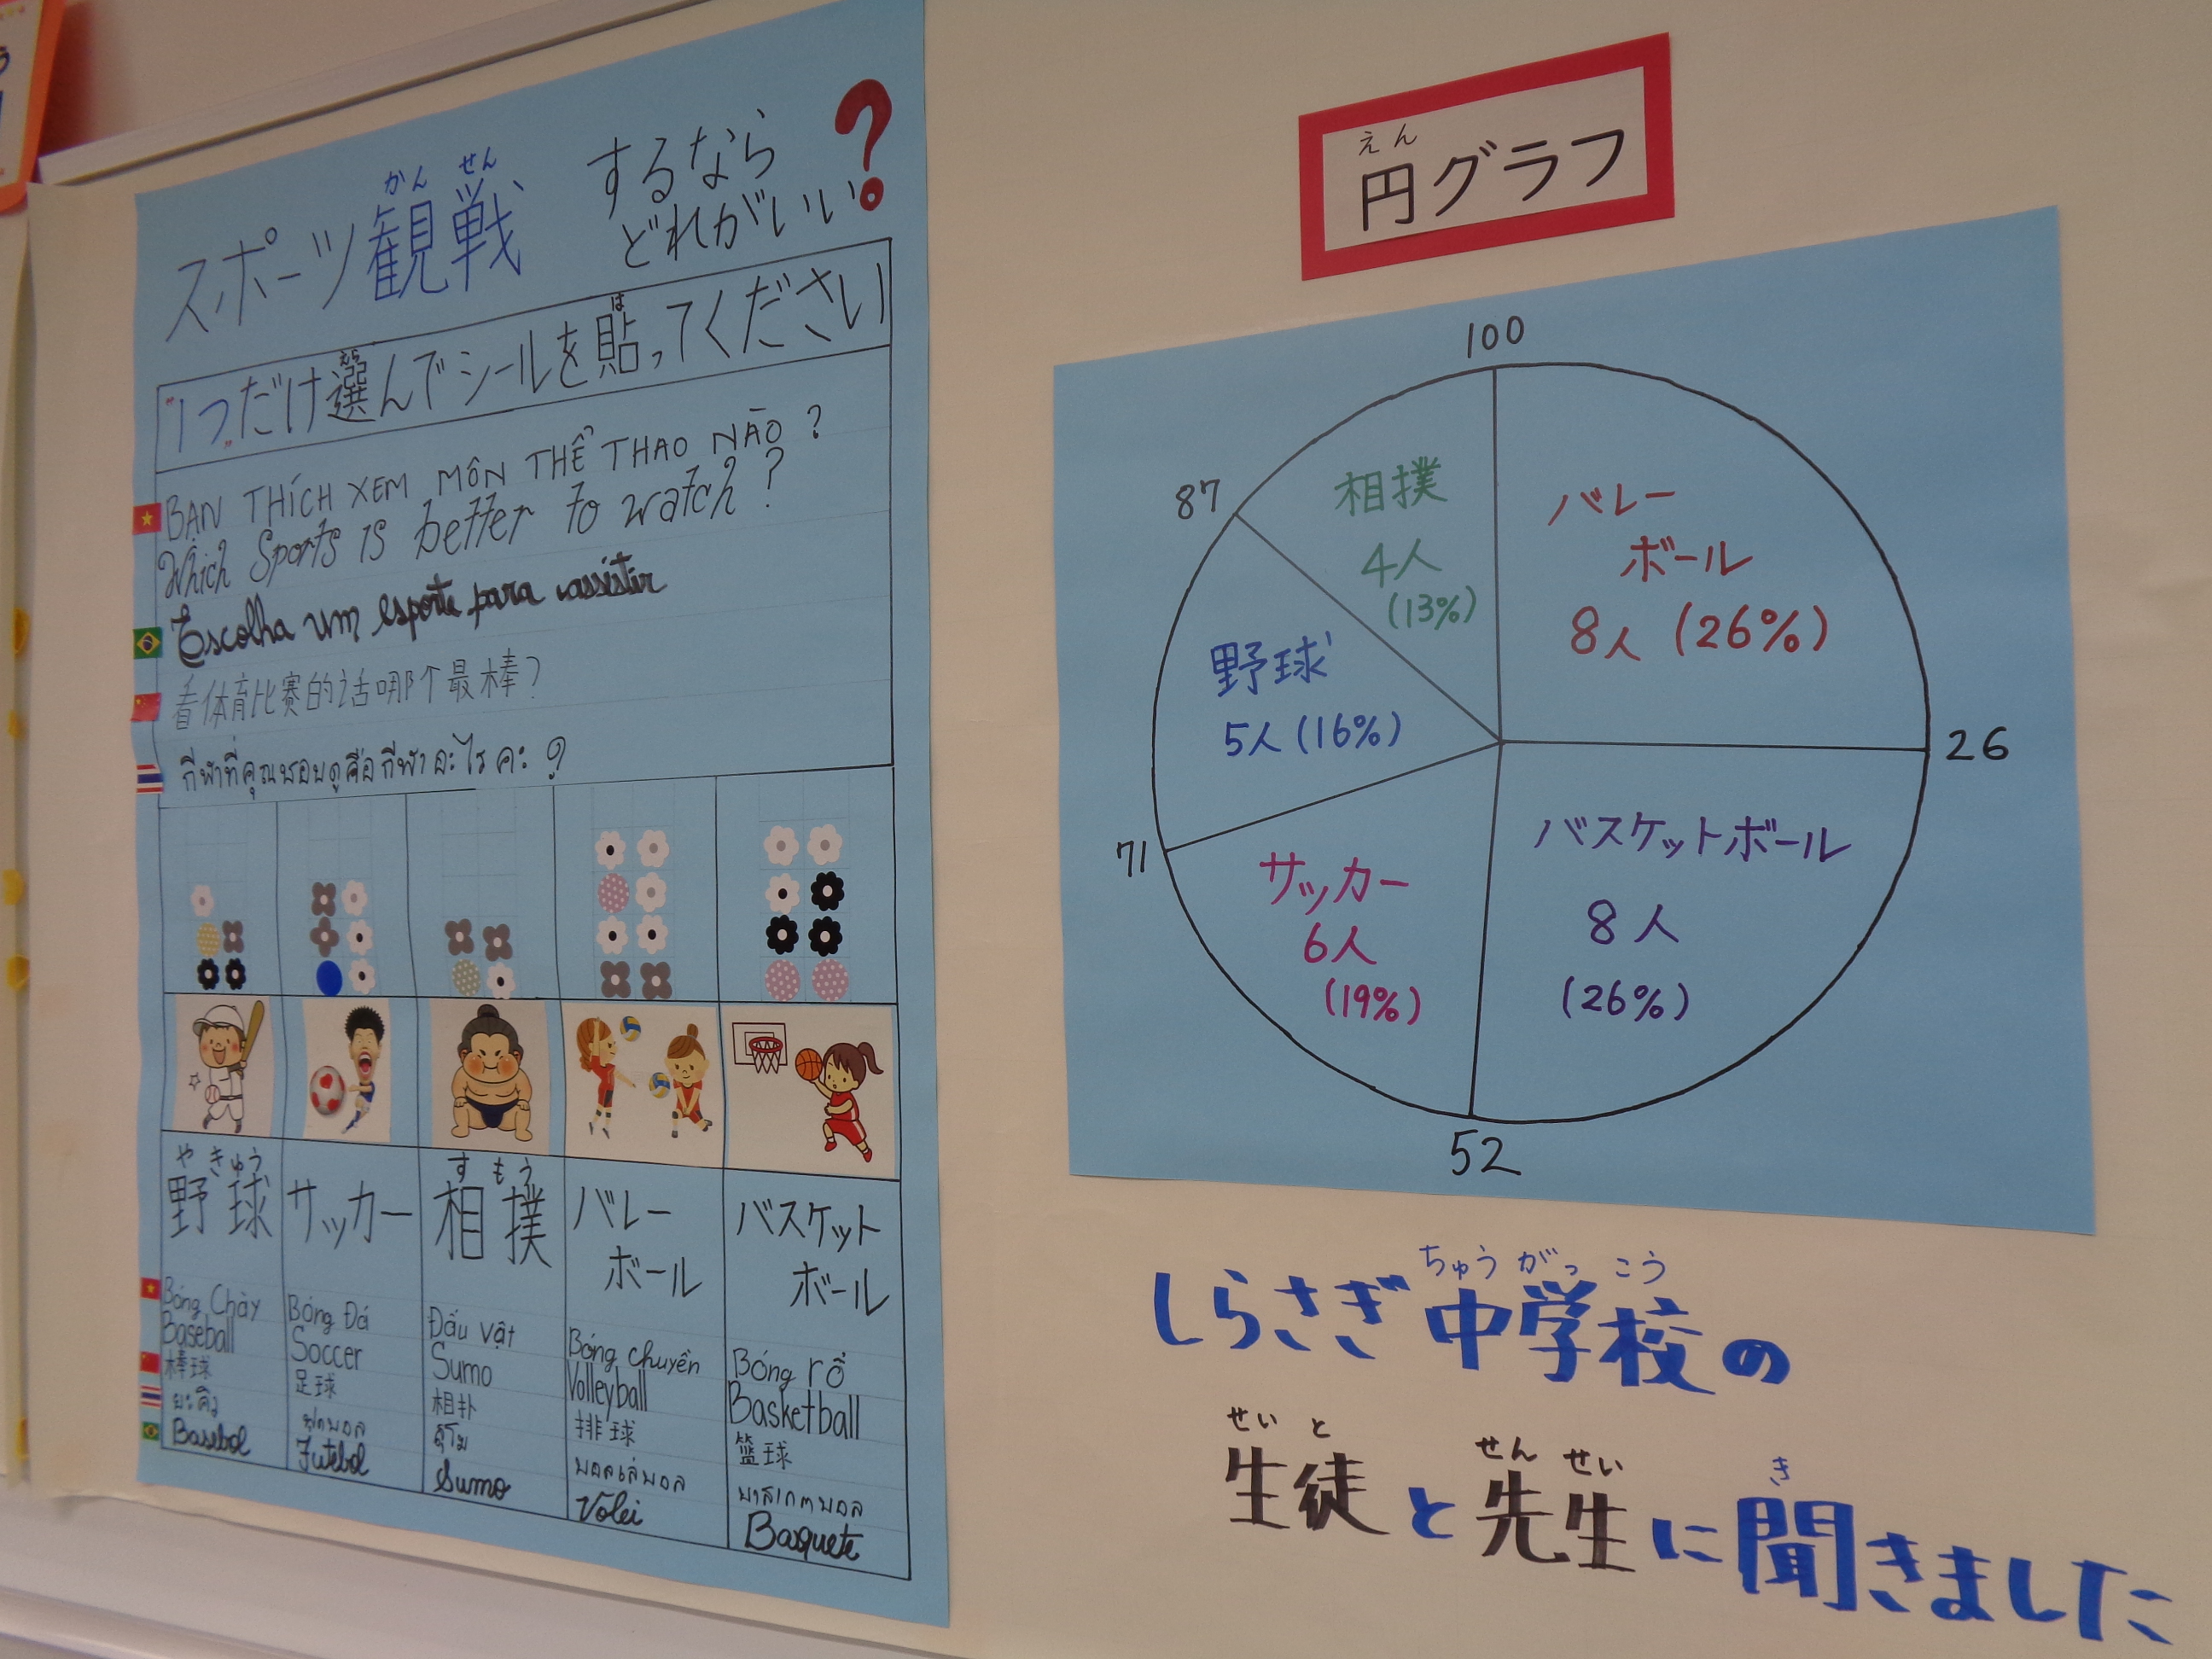 スポーツ観戦
かん せん
するなら
どれがいい?
"1つ"だけ選んでシールを貼ってください
えら
は
BẠN THÍCH XEM MÔN THỂ THAO NÀO?
Which Sports is better to watch?
Escolha um esporte para assistir
看体育比赛的话哪个最棒?
กีฬาที่คุณชอบดูคือกีฬาอะไรคะ?
やきゅう
野球
Bóng Chày
Baseball
棒球
Basebol
サッカー
Bóng Đá
Soccer
足球
ฟุตบอล
Futebol
すもう
相撲
Đấu vật
Sumo
相扑
ซูโม่
Sumo
バレー
ボール
Bóng chuyền
Volleyball
排球
วอลเล่บอล
Volei
バスケット
ボール
Bóng rổ
Basketball
篮球
บาสเกตบอล
Basquete
えん
円グラフ
100
バレー
ボール
8人 (26%)
26
バスケットボール
8人
(26%)
52
サッカー
6人
(19%)
71
野球
5人 (16%)
87
相撲
4人
(13%)
ちゅう がっ こう
しらさぎ中学校の
せい と せん せい き
生徒と先生に聞きました